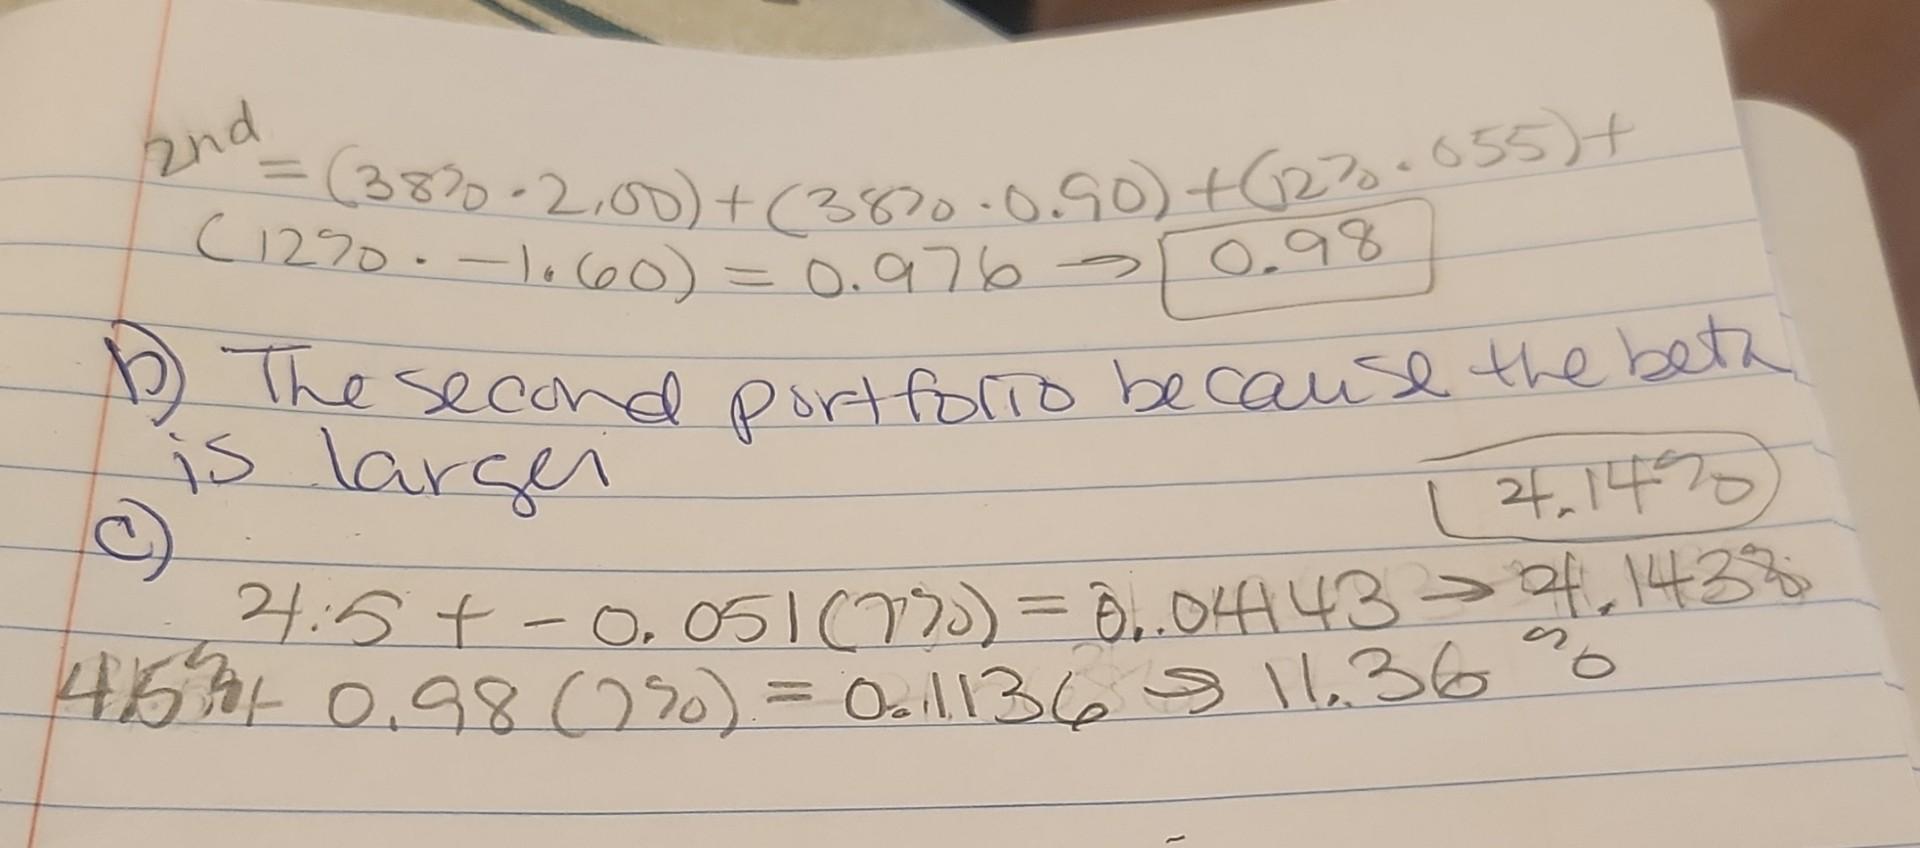 2nd = (38% · 2.00) + (38% · 0.90) + (12% · 0.55) +
(12% · -1.60) = 0.976 → 0.98
b) The second portfolio because the beta
is larger
4.14%
c)
4.5 + -0.051(7%) = 0.04143 → 4.143%
4.5% + 0.98 (7%) = 0.1136 → 11.36%